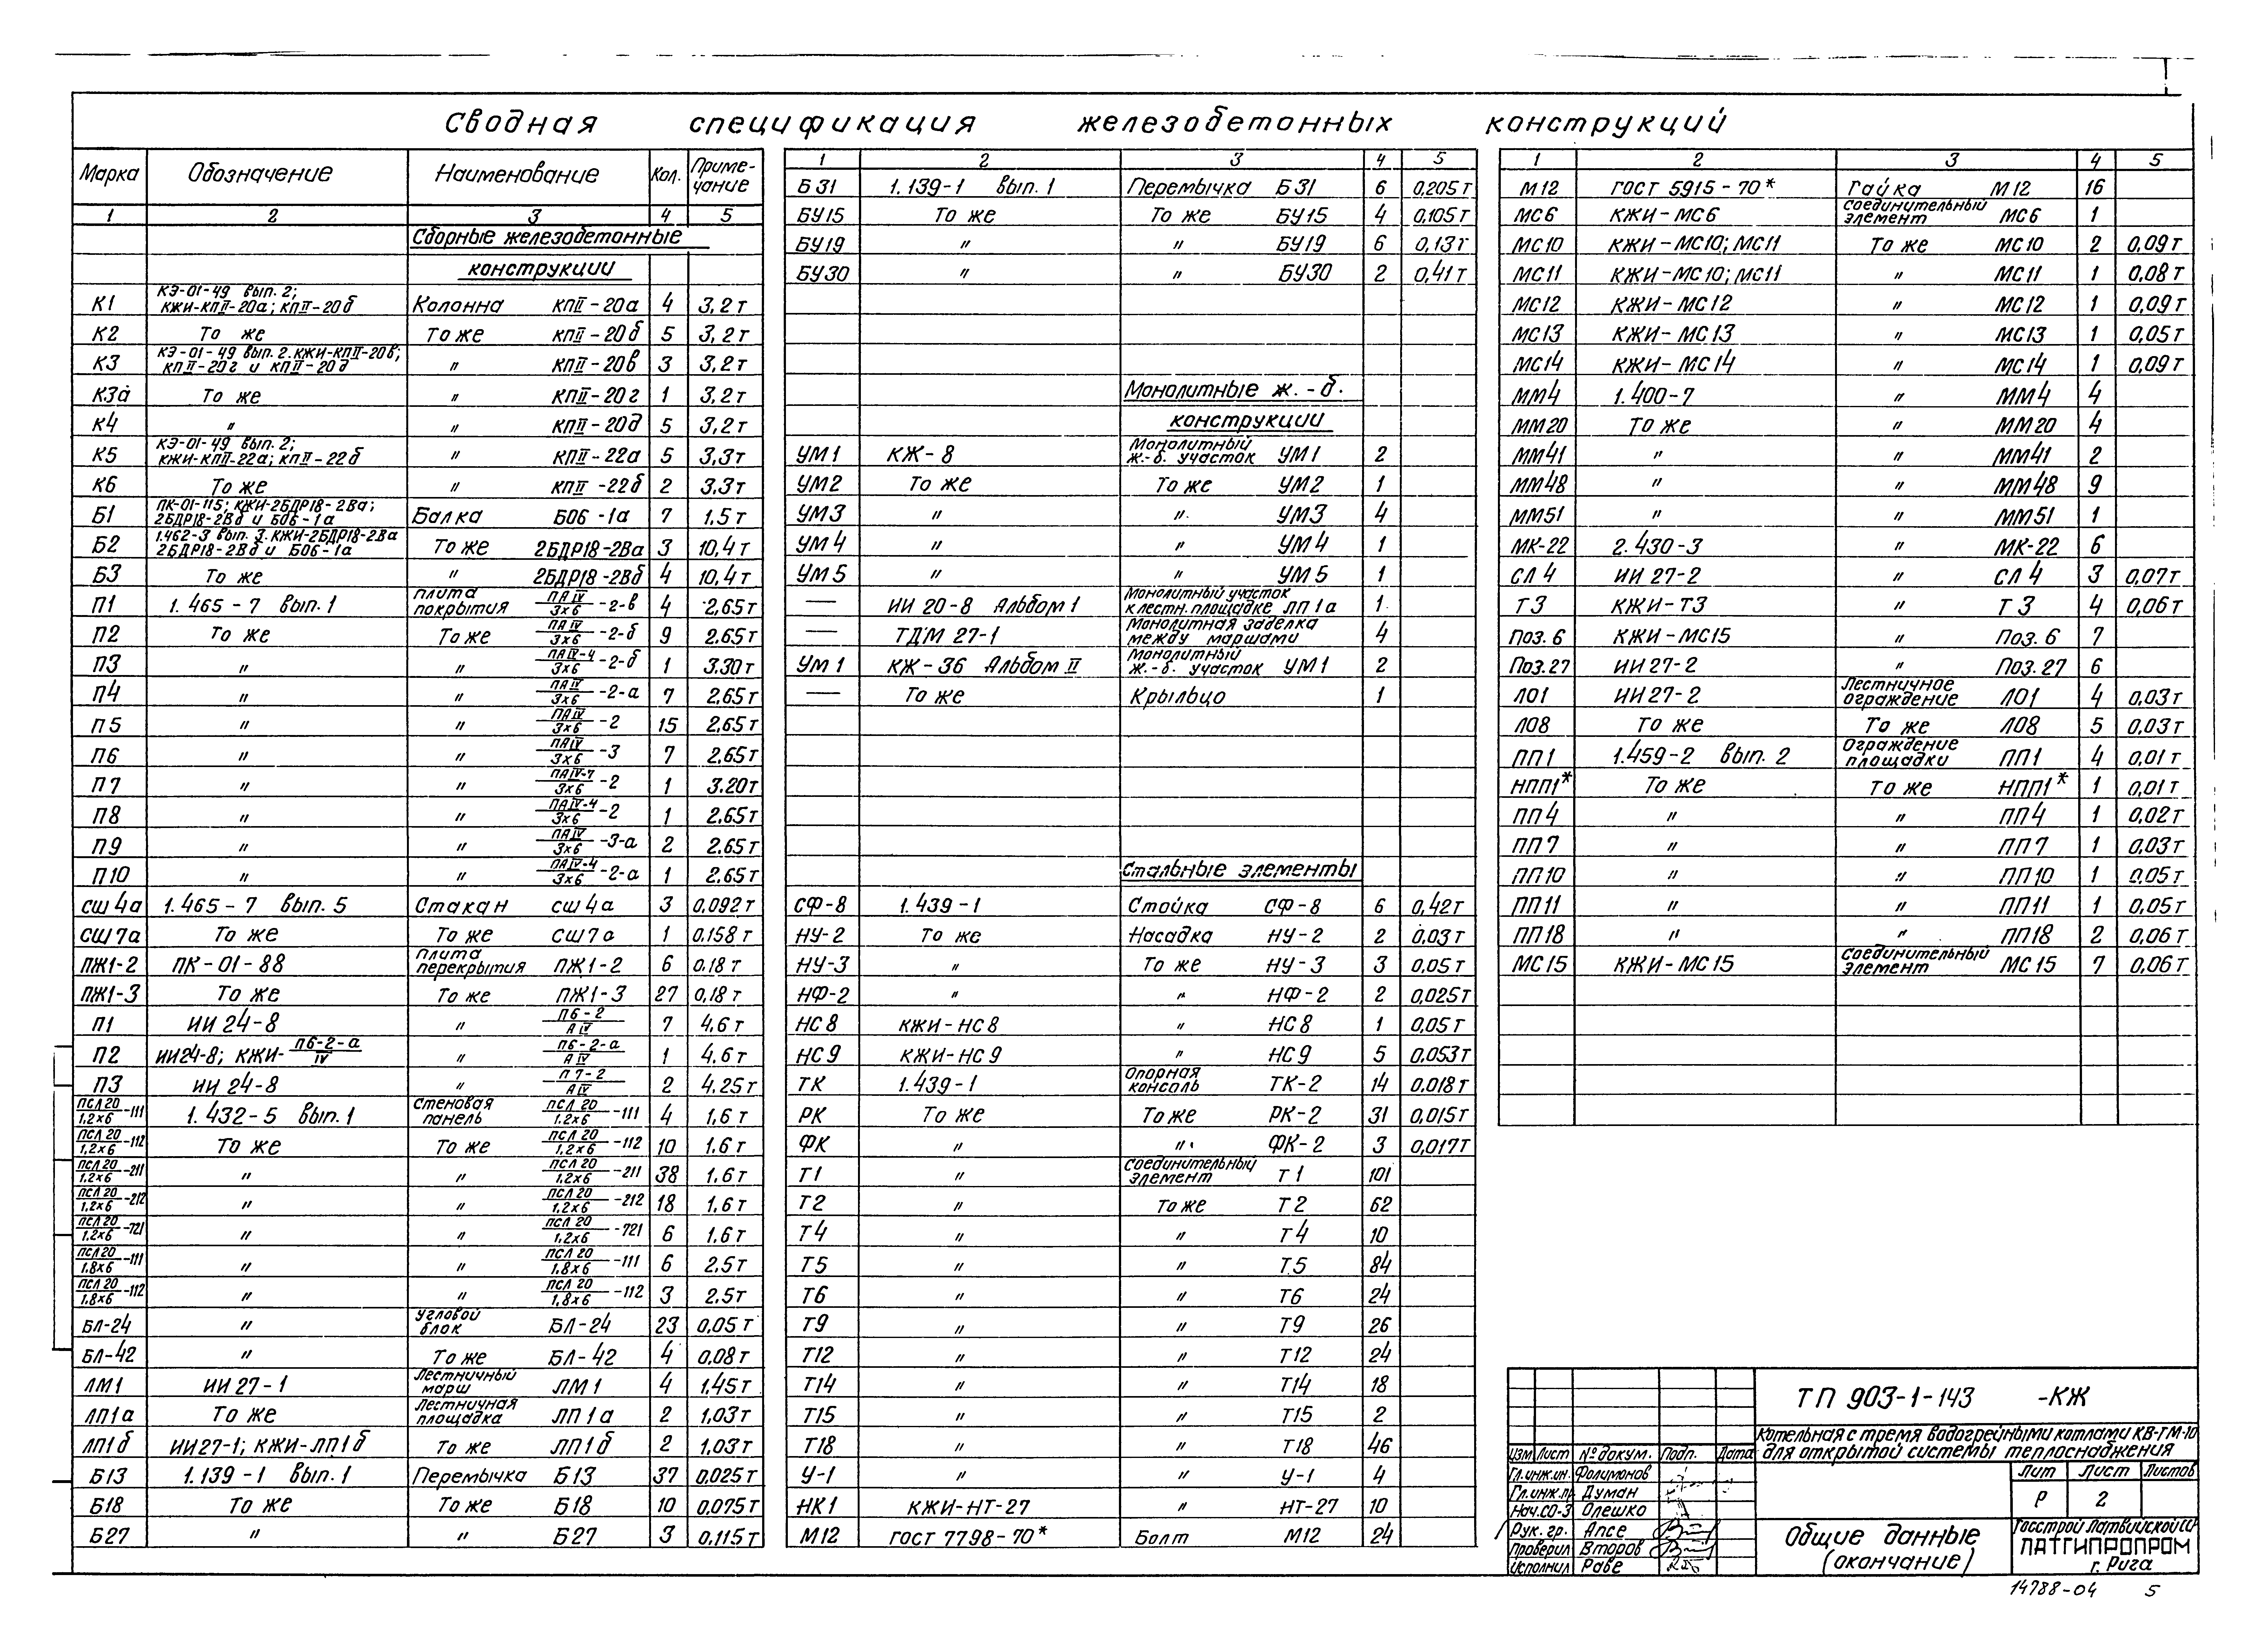 Сводная спецификация железобетонных конструкций
Марка Обозначение Наименование Кол. Приме-чание
1 2 3 4 5
Сборные железобетонные
конструкции
К1 КЭ-01-49 вып. 2; КЖИ-КПII-20а; КПII-20б Колонна КПII-20а 4 3,2т
К2 То же То же КПII-20б 5 3,2т
К3 КЭ-01-49 вып. 2. КЖИ-КПII-20в; КПII-20г и КПII-20д " КПII-20в 3 3,2т
К3а То же " КПII-20г 1 3,2т
К4 " " КПII-20д 5 3,2т
К5 КЭ-01-49 вып. 2; КЖИ-КПII-22а; КПII-22б " КПII-22а 5 3,3т
К6 То же " КПII-22б 2 3,3т
Б1 ПК-01-115; КЖИ-2БДР18-2Ва; 2БДР18-2Вб и Б06-1а Балка Б06-1а 7 1.5т
Б2 1.462-3 вып. 3. КЖИ-2БДР18-2Ва 2БДР18-2Вб и Б06-1а То же 2БДР18-2Ва 3 10,4т
Б3 То же " 2БДР18-2Вб 4 10,4т
П1 1.465-7 вып. 1 Плита покрытия ПАIV/3х6-2-в 4 2,65т
П2 То же То же ПАIV/3х6-2-б 9 2.65т
П3 " " ПАIV-4/3х6-2-б 1 3.30т
П4 " " ПАIV/3х6-2-а 7 2,65т
П5 " " ПАIV/3х6-2 15 2,65т
П6 " " ПАIV/3х6-3 7 2,65т
П7 " " ПАIV-7/3х6-2 1 3.20т
П8 " " ПАIV-4/3х6-2 1 2,65т
П9 " " ПАIV/3х6-3-а 2 2.65т
П10 " " ПАIV-4/3х6-2-а 1 2.65т
СШ4а 1.465-7 вып. 5 Стакан СШ4а 3 0,092т
СШ7а То же То же СШ7а 1 0.158т
ПЖ1-2 ПК-01-88 Плита перекрытия ПЖ1-2 6 0,18т
ПЖ1-3 То же То же ПЖ1-3 27 0,18т
П1 ИИ 24-8 " П6-2/АIV 7 4,6т
П2 ИИ24-8; КЖИ-П6-2-а/IV " П6-2-а/АIV 1 4.6т
П3 ИИ 24-8 " П7-2/АIV 2 4,25т
ПСЛ 20/1,2х6-111 1.432-5 вып. 1 Стеновая панель ПСЛ 20/1.2х6-111 4 1,6т
ПСЛ 20/1,2х6-112 То же То же ПСЛ 20/1.2х6-112 10 1.6т
ПСЛ 20/1.2х6-211 " " ПСЛ 20/1.2х6-211 38 1,6т
ПСЛ 20/1,2х6-212 " " ПСЛ 20/1,2х6-212 18 1,6т
ПСЛ 20/1.2х6-721 " " ПСЛ 20/1.2х6-721 6 1,6т
ПСЛ 20/1.8х6-111 " " ПСЛ 20/1.8х6-111 6 2,5т
ПСЛ 20/1,8х6-112 " " ПСЛ 20/1,8х6-112 3 2,5т
БЛ-24 " Угловой блок БЛ-24 23 0,05т
БЛ-42 " То же БЛ-42 4 0,08т
ЛМ1 ИИ 27-1 Лестничный марш ЛМ1 4 1,45т
ЛП1а То же Лестничная площадка ЛП1а 2 1,03т
ЛП1б ИИ27-1; КЖИ-ЛП1б То же ЛП1б 2 1,03т
Б13 1.139-1 вып. 1 Перемычка Б13 37 0,025т
Б18 То же То же Б18 10 0,075т
Б27 " " Б27 3 0,115т
1 2 3 4 5
Б31 1.139-1 вып. 1 Перемычка Б31 6 0,205т
БУ15 То же То же БУ15 4 0,105т
БУ19 " " БУ19 6 0,13т
БУ30 " " БУ30 2 0,41т
Монолитные ж.-б.
конструкции
УМ1 КЖ-8 Монолитный ж.-б. участок УМ1 2
УМ2 То же То же УМ2 1
УМ3 " " УМ3 4
УМ4 " " УМ4 1
УМ5 " " УМ5 1
— ИИ 20-8 Альбом 1 Монолитный участок к лестн. площадке ЛП1а 1
— ТДМ 27-1 Монолитная заделка между маршами 4
Ум1 КЖ-36 Альбом II Монолитный ж.-б. участок УМ1 2
— То же Крыльцо 1
Стальные элементы
СФ-8 1.439-1 Стойка СФ-8 6 0,42т
НУ-2 То же Насадка НУ-2 2 0,03т
НУ-3 " То же НУ-3 3 0,05т
НФ-2 " " НФ-2 2 0,025т
НС8 КЖИ-НС8 " НС8 1 0,05т
НС9 КЖИ-НС9 " НС9 5 0,053т
ТК 1.439-1 Опорная консоль ТК-2 14 0.018т
РК То же То же РК-2 31 0,015т
ФК " " ФК-2 3 0,017т
Т1 " Соединительный элемент Т1 101
Т2 " То же Т2 62
Т4 " " Т4 10
Т5 " " Т5 84
Т6 " " Т6 24
Т9 " " Т9 26
Т12 " " Т12 24
Т14 " " Т14 18
Т15 " " Т15 2
Т18 " " Т18 46
У-1 " " У-1 4
НК1 КЖИ-НТ-27 " НТ-27 10
М12 ГОСТ 7798-70* Болт М12 24
1 2 3 4 5
М12 ГОСТ 5915-70* Гайка М12 16
МС6 КЖИ-МС6 Соединительный элемент МС6 1
МС10 КЖИ-МС10; МС11 То же МС10 2 0,09т
МС11 КЖИ-МС10; МС11 " МС11 1 0,08т
МС12 КЖИ-МС12 " МС12 1 0,09т
МС13 КЖИ-МС13 " МС13 1 0,05т
МС14 КЖИ-МС14 " МС14 1 0,09т
ММ4 1.400-7 " ММ4 4
ММ20 То же " ММ20 4
ММ41 " " ММ41 2
ММ48 " " ММ48 9
ММ51 " " ММ51 1
МК-22 2.430-3 " МК-22 6
СЛ4 ИИ 27-2 " СЛ4 3 0,07т
Т3 КЖИ-Т3 " Т3 4 0,06т
Поз. 6 КЖИ-МС15 " Поз. 6 7
Поз.27 ИИ 27-2 " Поз.27 6
ЛО1 ИИ 27-2 Лестничное ограждение ЛО1 4 0,03т
ЛО8 То же То же ЛО8 5 0,03т
ПП1 1.459-2 вып. 2 Ограждение площадки ПП1 4 0,01т
НПП1* То же То же НПП1* 1 0,01т
ПП4 " " ПП4 1 0,02т
ПП7 " " ПП7 1 0,03т
ПП10 " " ПП10 1 0,05т
ПП11 " " ПП11 1 0,05т
ПП18 " " ПП18 2 0,06т
МС15 КЖИ-МС15 Соединительный элемент МС15 7 0,06т
ТП 903-1-143 -КЖ
Котельная с тремя водогрейными котлами КВ-ГМ-10
для открытой системы теплоснабжения
Изм Лист № докум. Подп. Дата
Гл.инж.ин. Фолимонов
Гл.инж.пр. Думан
Нач.СО-3 Олешко
Рук. гр. Апсе
Проверил Второв
Исполнил Раве
Лит Лист Листов
Р 2
Общие данные
(окончание)
Госстрой Латвийской СС
ЛАТГИПРОПРОМ
г. Рига
14788-04 5